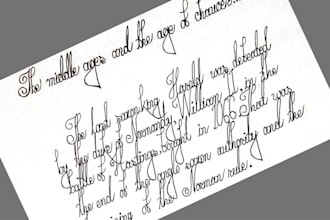 The middle ages and the age of chaucer...
The last saxon king Harold was defeated
by the duke of Normandy William I, in the
battle of Hastings, fought in 1066. That was
the end of the anglo saxon authority and the
of the Norman rule.